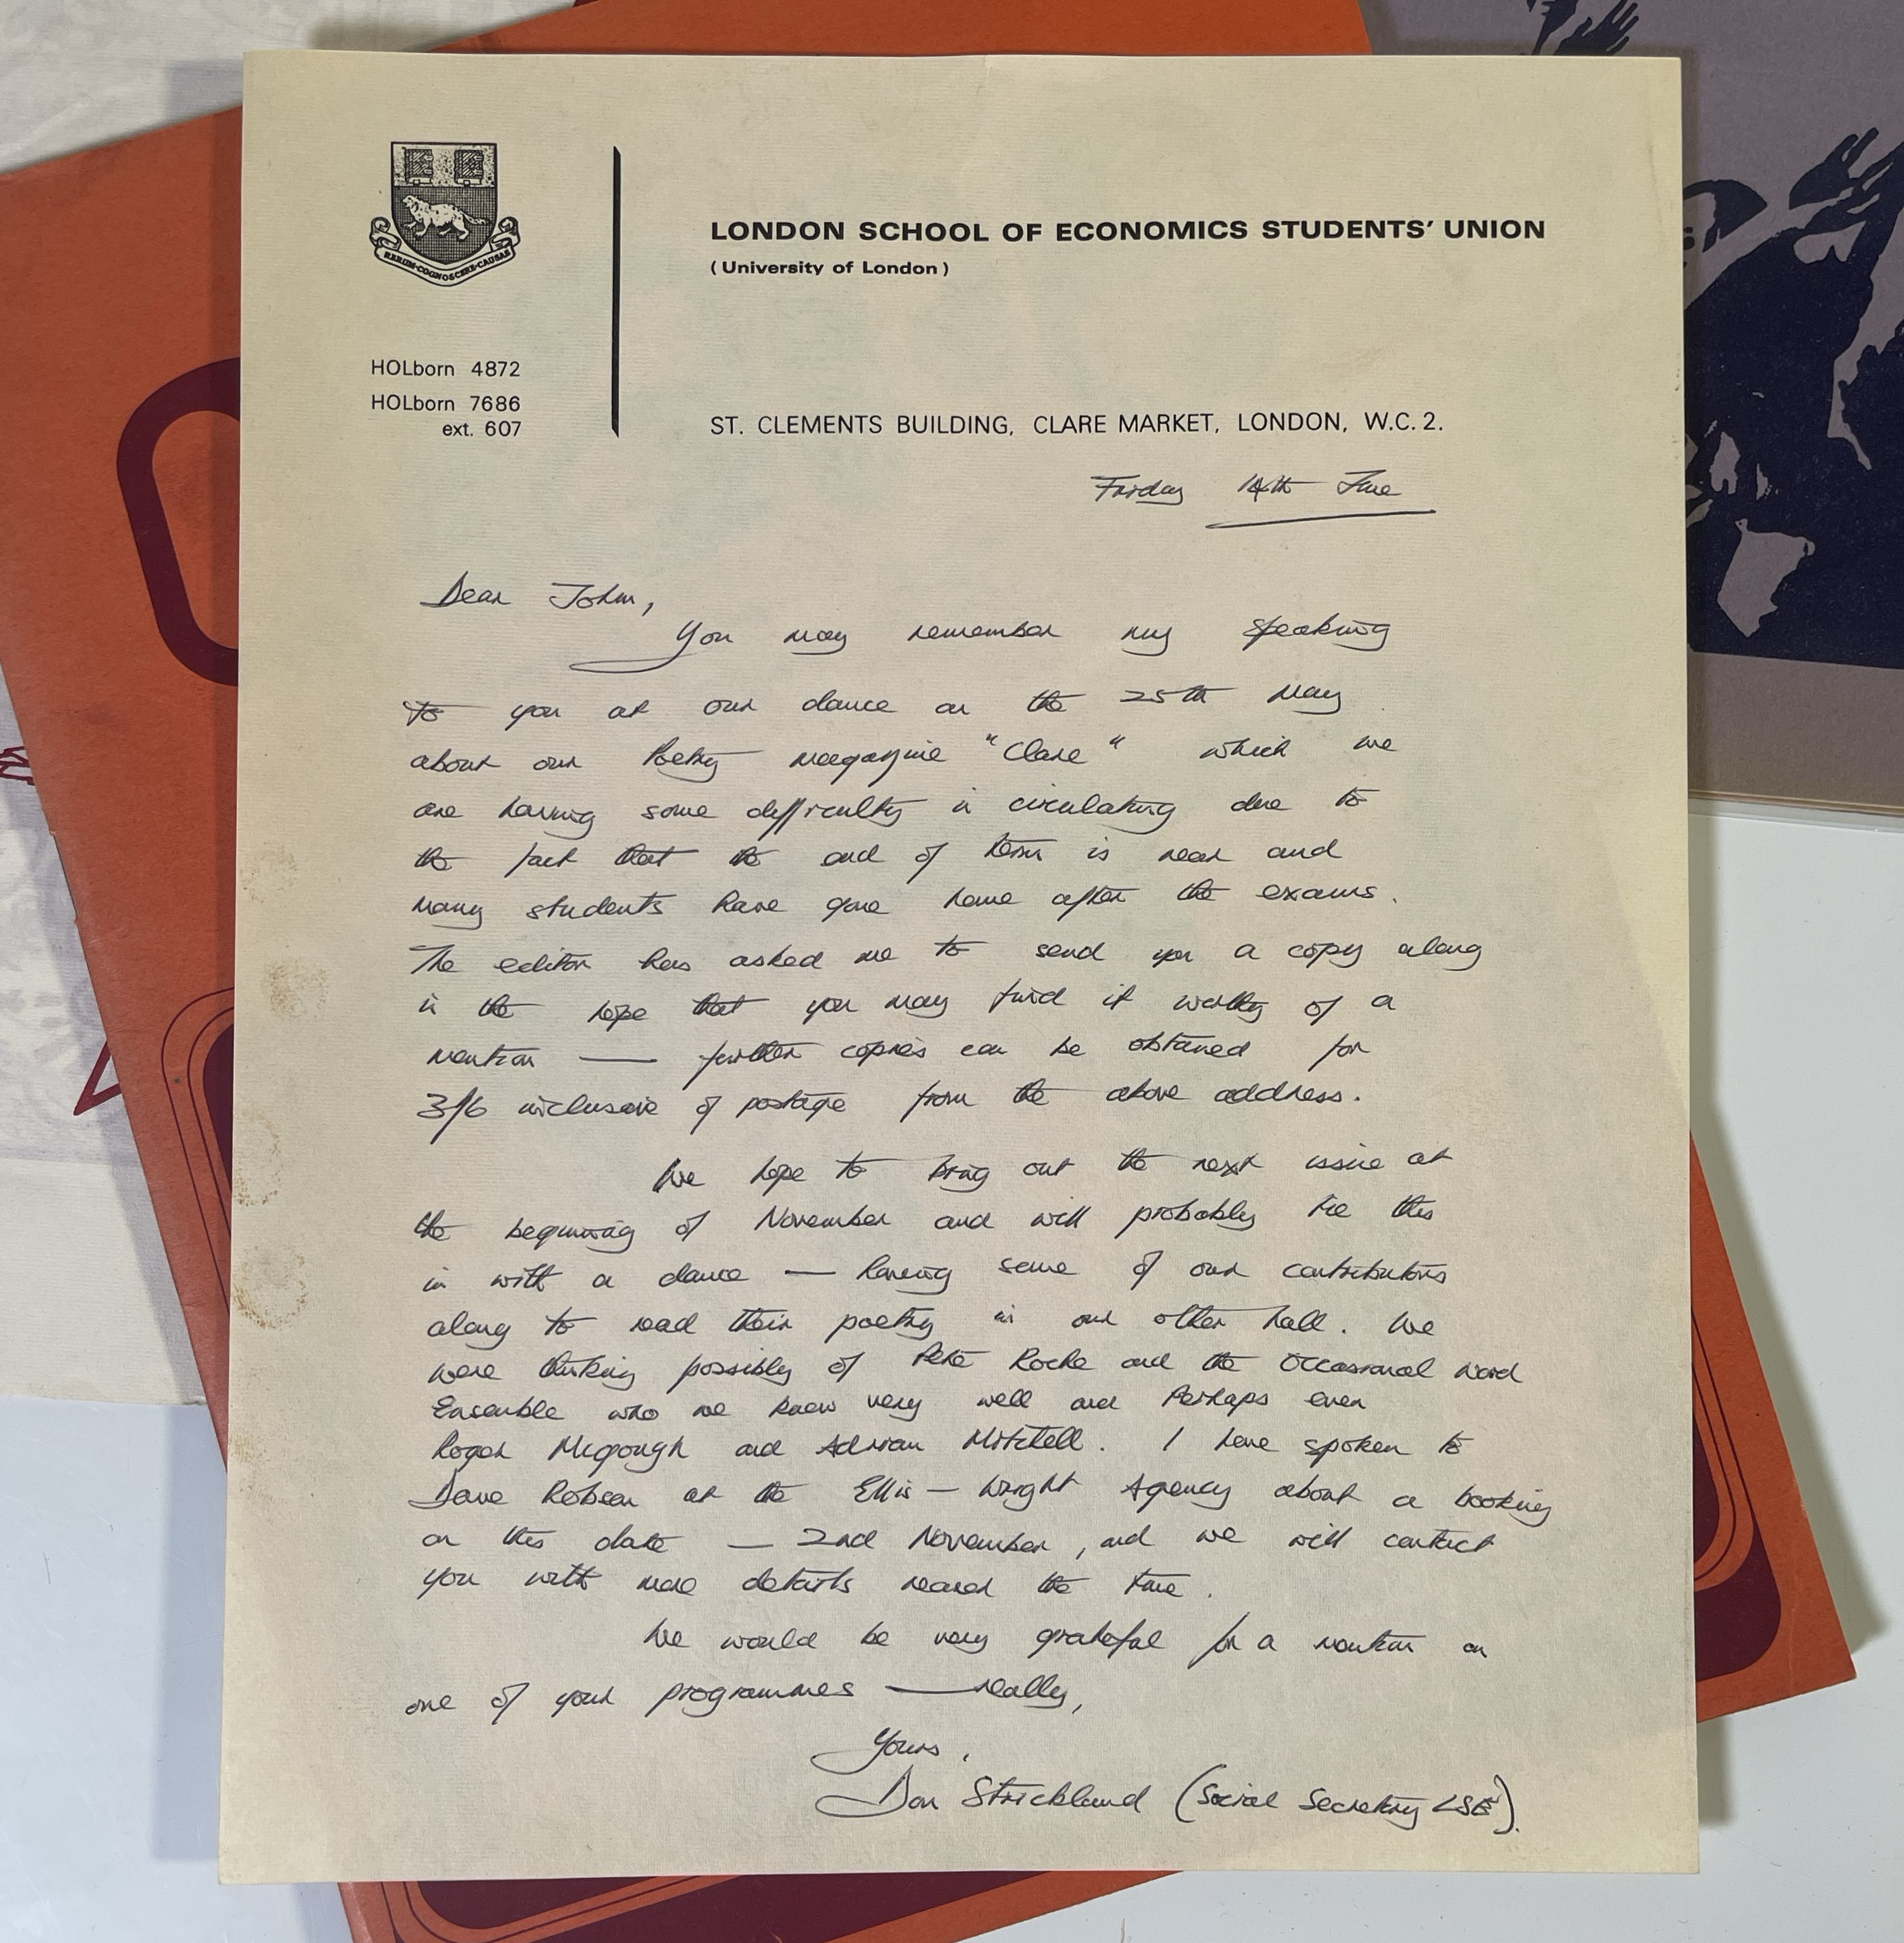 RERUM·COGNOSCERE·CAUSAS
LONDON SCHOOL OF ECONOMICS STUDENTS' UNION
(University of London)
HOLborn 4872
HOLborn 7686
ext. 607
ST. CLEMENTS BUILDING, CLARE MARKET, LONDON, W.C.2.
Friday 14th June
Dear John,
You may remember my speaking
to you at our dance on the 25th May
about our Poetry magazine "Clare" which we
are having some difficulty in circulating due to
the fact that the end of term is near and
many students have gone home after the exams.
The editor has asked me to send you a copy along
in the hope that you may find it worthy of a
mention — further copies can be obtained for
3/6 inclusive of postage from the above address.
We hope to bring out the next issue at
the beginning of November and will probably tie this
in with a dance — having some of our contributors
along to read their poetry in our other hall. We
were thinking possibly of Pete Roche and the Occasional Word
Ensemble who we know very well and Perhaps even
Roger Mcgough and Adrian Mitchell. I have spoken to
Dave Robson at the Ellis-Wright Agency about a booking
on this date — 2nd November, and we will contact
you with more details nearer the time.
We would be very grateful for a mention on
one of your programmes — really,
Yours,
Don Strickland (Social Secretary LSE).